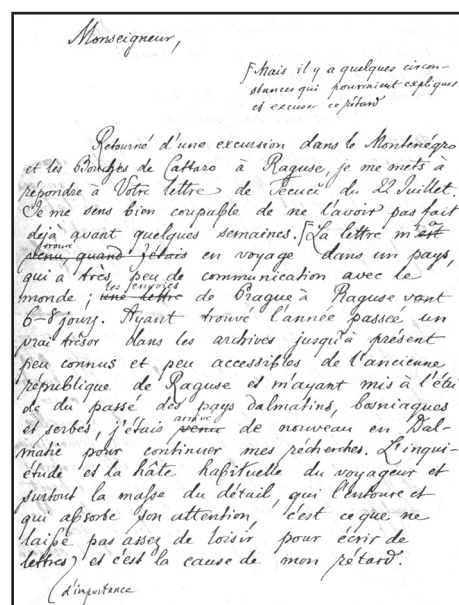 Monseigneur,
⌈Mais il y a quelques circon-
stances qui pourraient expliquer
et excuser ce rétard
Retourné d'une excursion dans le Monténégro
et les Bouches de Cattaro à Raguse, je me mets à
répondre à Votre lettre de Tecuci du 22 Juillet.
Je me sens bien coupable de ne l'avoir pas fait
dejà avant quelques semaines. ⌈La lettre m'est a
trouvé
venu, quand j'étais en voyage dans un pays,
qui a très peu de communication avec le
les envoies
monde; une lettre de Prague à Raguse vont
6-8 jours. Ayant trouvé l'année passée un
vrai trésor dans les archives jusqu'à présent
peu connus et peu accessibles de l'ancienne
république de Raguse et m'ayant mis à l'étu
de du passé des pays dalmatins, bosniaques
arrivé
et serbes, j'étais venu de nouveau en Dal-
matie pour continuer mes récherches. L'inqui-
étude et la hâte habituelle du voyageur et
surtout la masse du détail, qui l'entoure et
qui absorbe son attention, c'est ce que ne
laisse pas assez de loisir pour écrir de
lettres) et c'est la cause de mon rétard.
d'importance